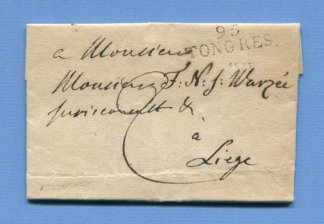 95
TONGRES
a Monsieur
Monsieur F. N. J. Warzée
jurisconsult &.
a
Liege